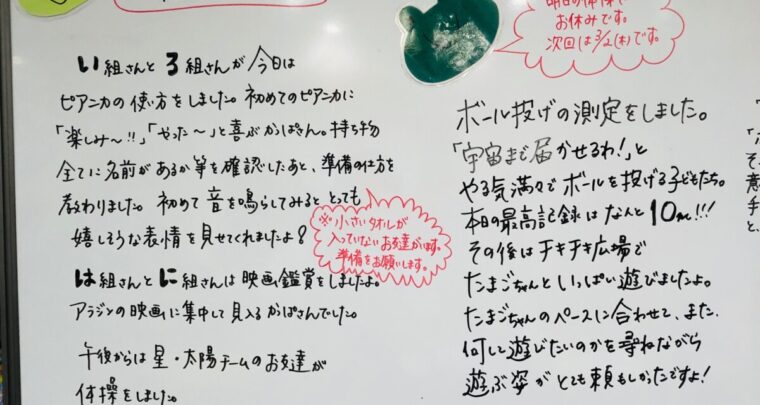 い組さんとろ組さんが今日は
ピアニカの使い方をしました。初めてのピアニカに
「楽しみ〜!!」「やった〜」と喜ぶかぱさん。持ち物
全てに名前があるか等を確認したあと、準備の仕方を
教わりました。初めて音を鳴らしてみるととても
嬉しそうな表情を見せてくれましたよ♪
※小さいタオルが
入っていないお友達がいます。
準備をお願いします。
は組さんとに組さんは映画鑑賞をしましたよ。
アラジンの映画に集中して見入るかぱさんでした。
午後からは星・太陽チームのお友達が
体操をしました。
明日の体操は
お休みです。
次回は3/2(木)です。
ボール投げの測定をしました。
「宇宙まで届かせるわ!」と
やる気満々でボールを投げる子どもたち。
本日の最高記録はなんと10m!!!
その後はチキチキ広場で
たまごちゃんといっぱい遊びましたよ。
たまごちゃんのペースに合わせて、また、
何して遊びたいのかを尋ねながら
遊ぶ姿がとても頼もしかったですよ!